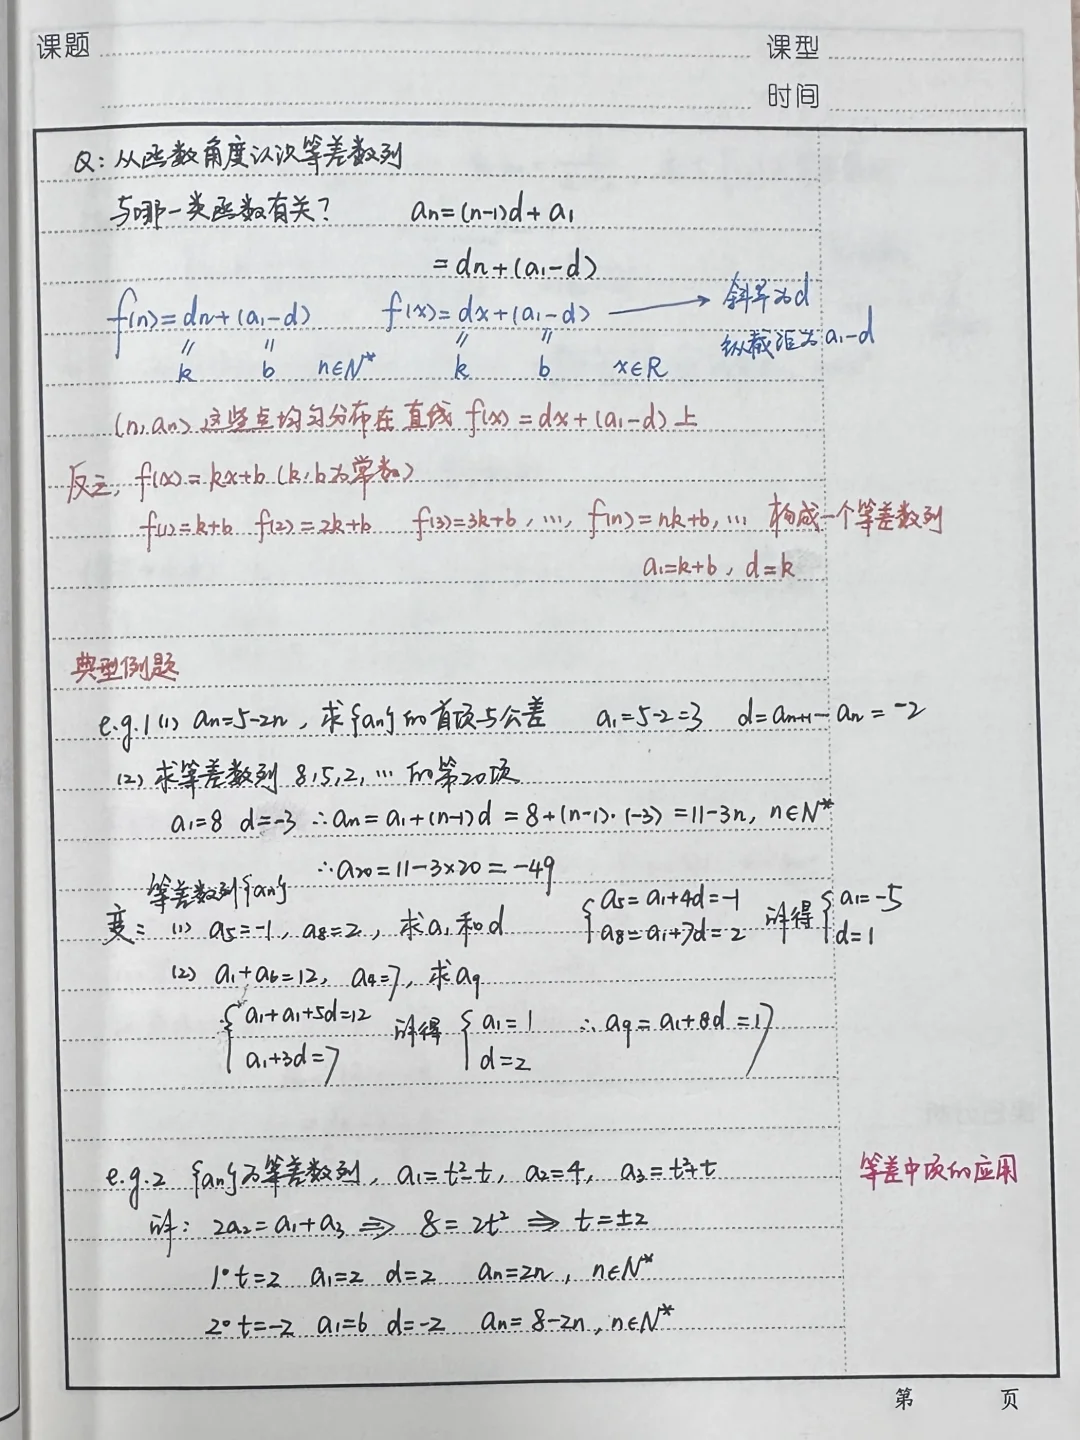 课题
课型
时间
Q：从函数角度认识等差数列
与哪一类函数有关？ an=(n-1)d+a1
=dn+(a1-d)
f(n)=dn+(a1-d) f(x)=dx+(a1-d) → 斜率为d
纵截距为a1-d
k b n∈N* k b x∈R
(n,an) 这些点均匀分布在直线 f(x)=dx+(a1-d)上
反之，f(x)=kx+b（k,b为常数）
f(1)=k+b f(2)=2k+b f(3)=3k+b，…，f(n)=nk+b，… 构成一个等差数列
a1=k+b，d=k
典型例题
e.g.1 (1) an=5-2n，求{an}的首项与公差 a1=5-2=3 d=an+1-an=-2
(2) 求等差数列 8,5,2,…的第20项
a1=8 d=-3 ∴an=a1+(n-1)d=8+(n-1)·(-3)=11-3n，n∈N*
∴a20=11-3×20=-49
等差数列{an}
变：(1) a5=-1，a8=2，求a1和d {a5=a1+4d=-1 a8=a1+7d=2 解得{a1=-5 d=1
(2) a1+a6=12，a4=7，求a9
{a1+a1+5d=12 a1+3d=7 解得{a1=1 d=2 ∴a9=a1+8d=17
e.g.2 {an}为等差数列，a1=t²-t，a2=4，a3=t²+t
等差中项的应用
解：2a2=a1+a3 ⇒ 8=2t² ⇒ t=±2
1° t=2 a1=2 d=2 an=2n，n∈N*
2° t=-2 a1=6 d=-2 an=8-2n，n∈N*
第 页